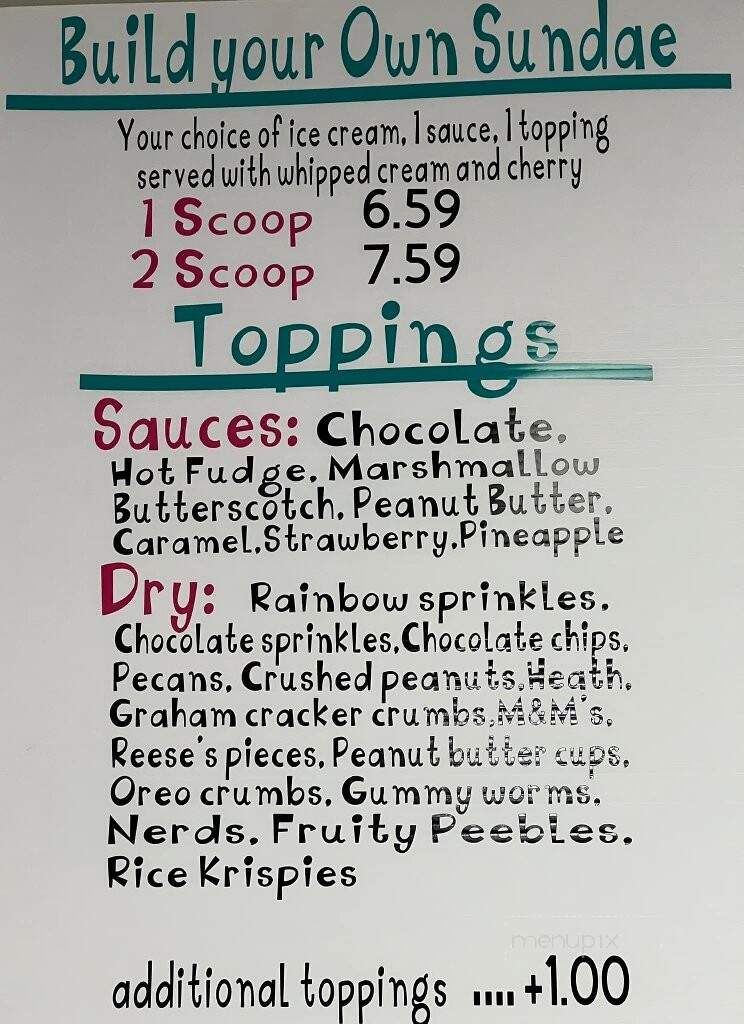 Build your Own Sundae
Your choice of ice cream, 1 sauce, 1 topping
served with whipped cream and cherry
1 Scoop 6.59
2 Scoop 7.59
Toppings
Sauces: Chocolate,
Hot Fudge, Marshmallow
Butterscotch, Peanut Butter,
Caramel,Strawberry,Pineapple
Dry: Rainbow sprinkles,
Chocolate sprinkles,Chocolate chips,
Pecans, Crushed peanuts,Heath,
Graham cracker crumbs,M&M's,
Reese's pieces, Peanut butter cups,
Oreo crumbs, Gummy worms,
Nerds, Fruity Peebles,
Rice Krispies
menupix
additional toppings .... +1.00